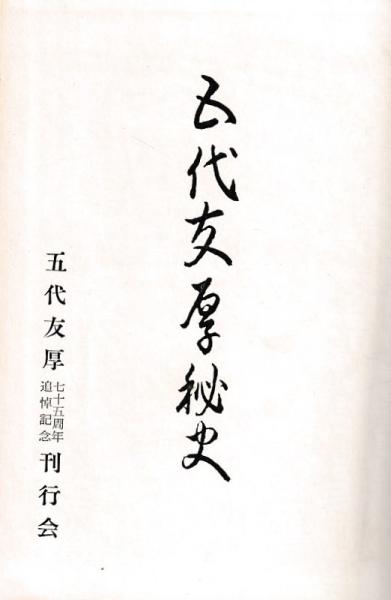 五代友厚秘史
五代友厚
七十五周年
追悼記念
刊行会